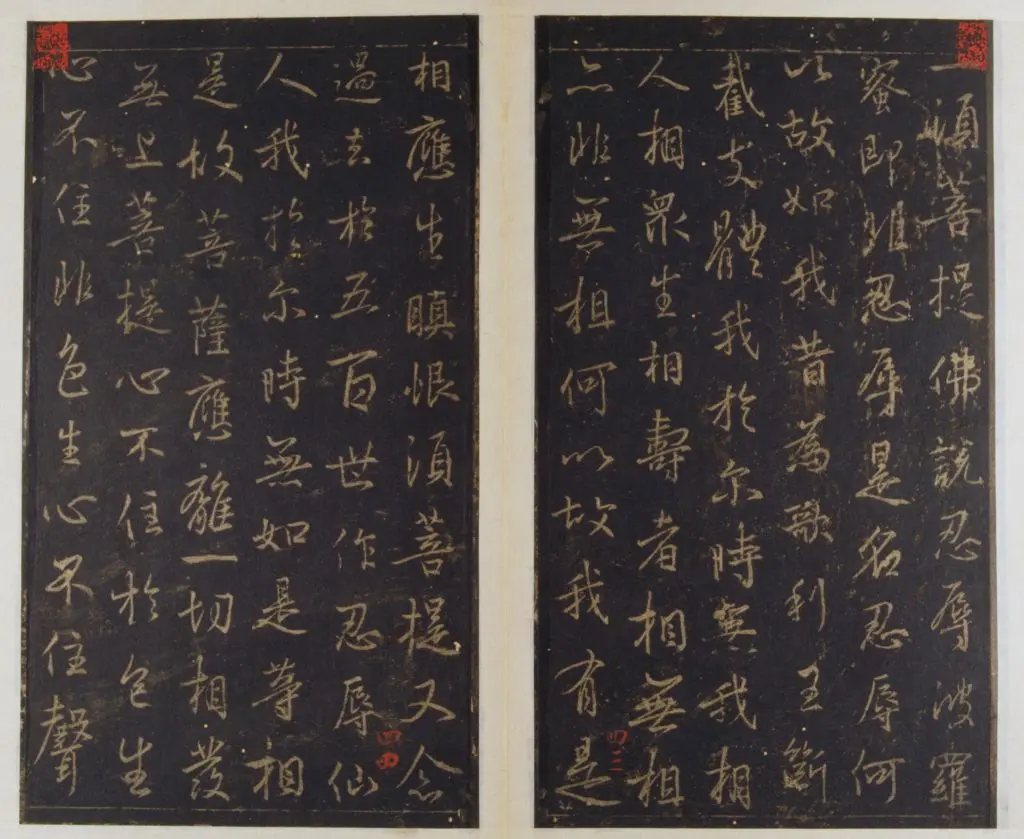 一須菩提佛說忍辱波羅
蜜即非忍辱是名忍辱何
以故如我昔為歌利王斷
截支體我於尔時無我相
人相眾生相壽者相無相
亦非無相何以故我有是
四三
相應生瞋恨須菩提又念
過去於五百世作忍辱仙
人我於尔時無如是等相
是故菩薩應離一切相發
無上菩提心不住於色生
心不住非色生心不住聲
四四